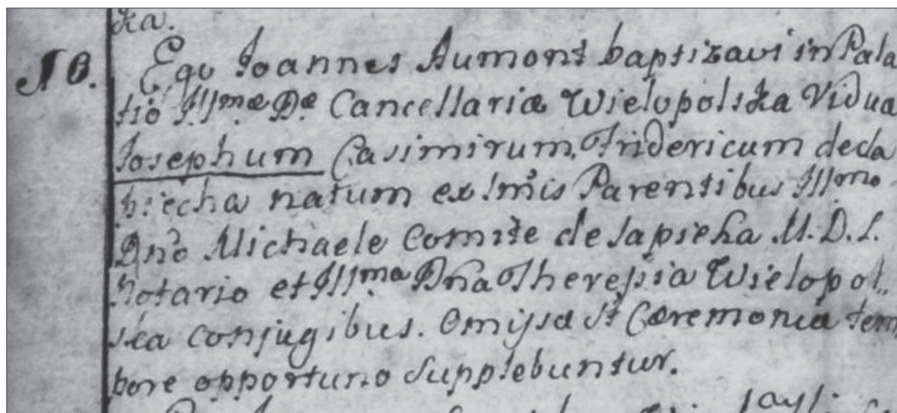 ka.
18. Ego Joannes Aumont baptizavi in Pala
tio Illmæ Dæ Cancellariæ Wielopolska Vidua
Josephum Casimirum Fridericum de Sa
piecha natum ex Imis Parentibus Illmo
Dno Michaele Comite de Sapieha M. D. L.
Notario et Illma Dna Theressia Wielopol„
ska conjugibus. Omissa St Cæremonia tem
pore opportuno supplebuntur.